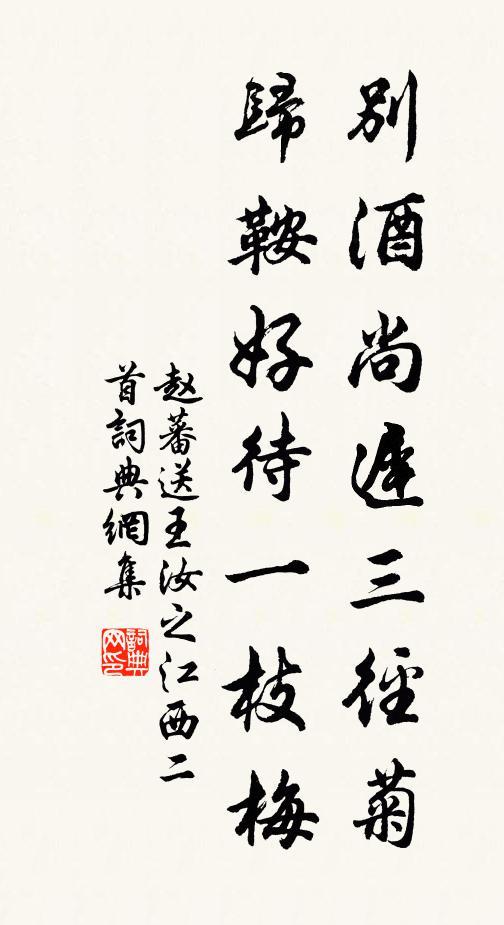 別酒尚遲三徑菊
歸鞍好待一枝梅
趙蕃送王汝之江西二
首詞典網集
詞典網印